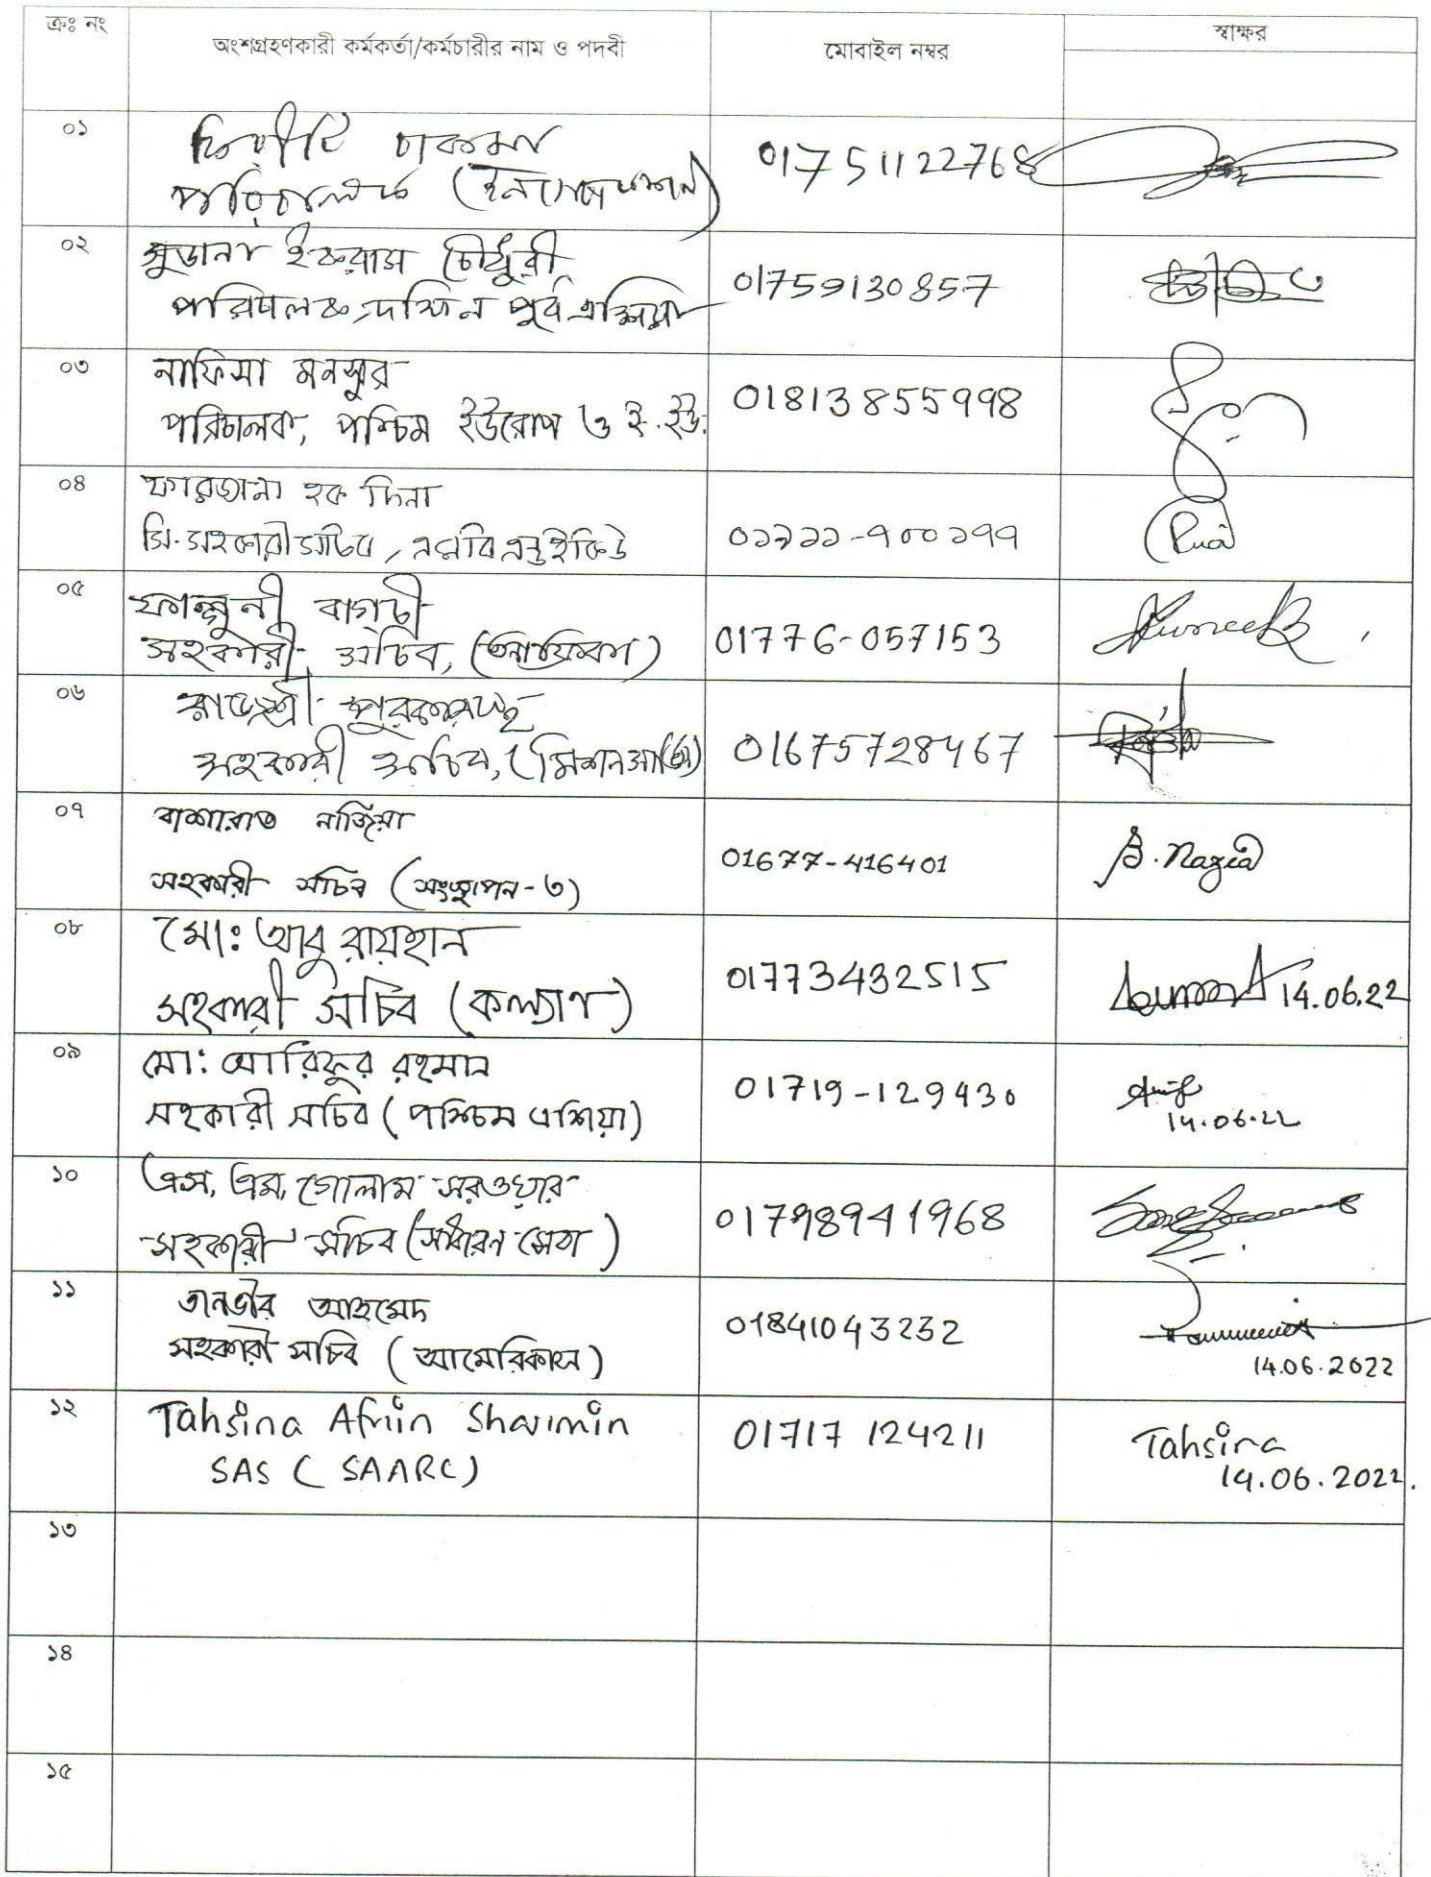 ক্রঃ নং
অংশগ্রহণকারী কর্মকর্তা/কর্মচারীর নাম ও পদবী
মোবাইল নম্বর
স্বাক্ষর
০১
চাকমা
পরিচালক
01751122768
০২
চৌধুরী
পরিচালক, দক্ষিন পূর্ব এশিয়া
01759130857
০৩
নাফিসা মনসুর
পরিচালক, পশ্চিম ইউরোপ ও ই.ইউ.
01813855998
০৪
ফারজানা হক দিনা
সি. সহকারী সচিব,
০১৯১১-৭০০১৭৭
০৫
ফাল্গুনী বাগ্চী
সহকারী সচিব, (আফ্রিকা)
01776-057153
০৬
সহকারী সচিব,
01675728467
০৭
বাশারাত নাজিয়া
সহকারী সচিব (সংস্থাপন-৩)
01677-416401
B. Nazia
০৮
মো: আবু রায়হান
সহকারী সচিব (কল্যাণ)
01773432515
14.06.22
০৯
মো: আরিফুর রহমান
সহকারী সচিব (পশ্চিম এশিয়া)
01719-129430
14.06.22
১০
এস, এম, গোলাম সরওয়ার
সহকারী সচিব (সাধারন সেবা)
01798941968
১১
তানভীর আহমেদ
সহকারী সচিব (আমেরিকাস)
01841043232
14.06.2022
১২
Tahsina Afrin Sharmin
SAS (SAARC)
01717 124211
Tahsina
14.06.2022.
১৩
১৪
১৫